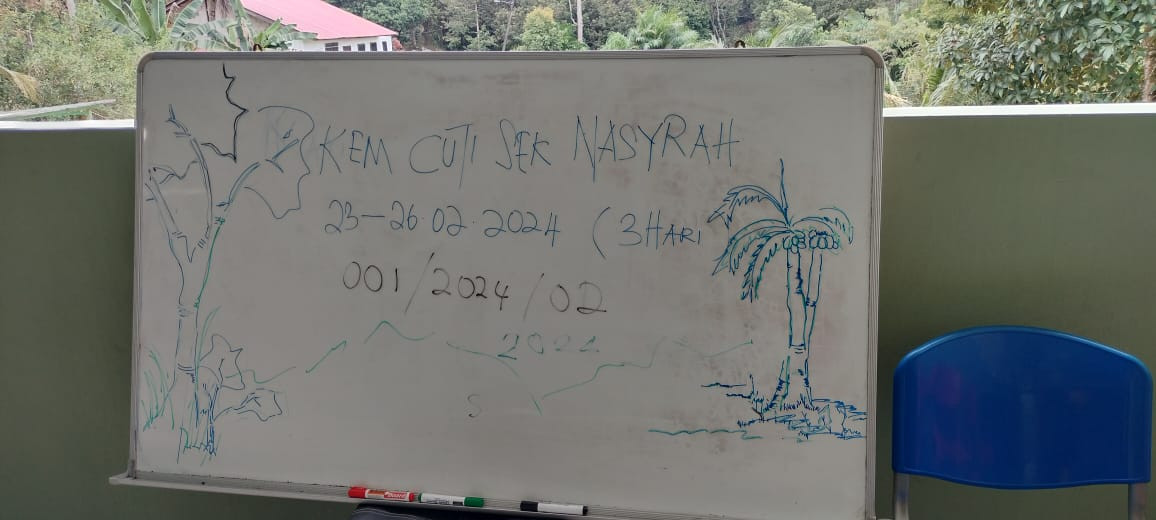 KEM CUTI SEK NASYRAH
23-26.02.2024 (3HARI
001/2024/02
2024
S